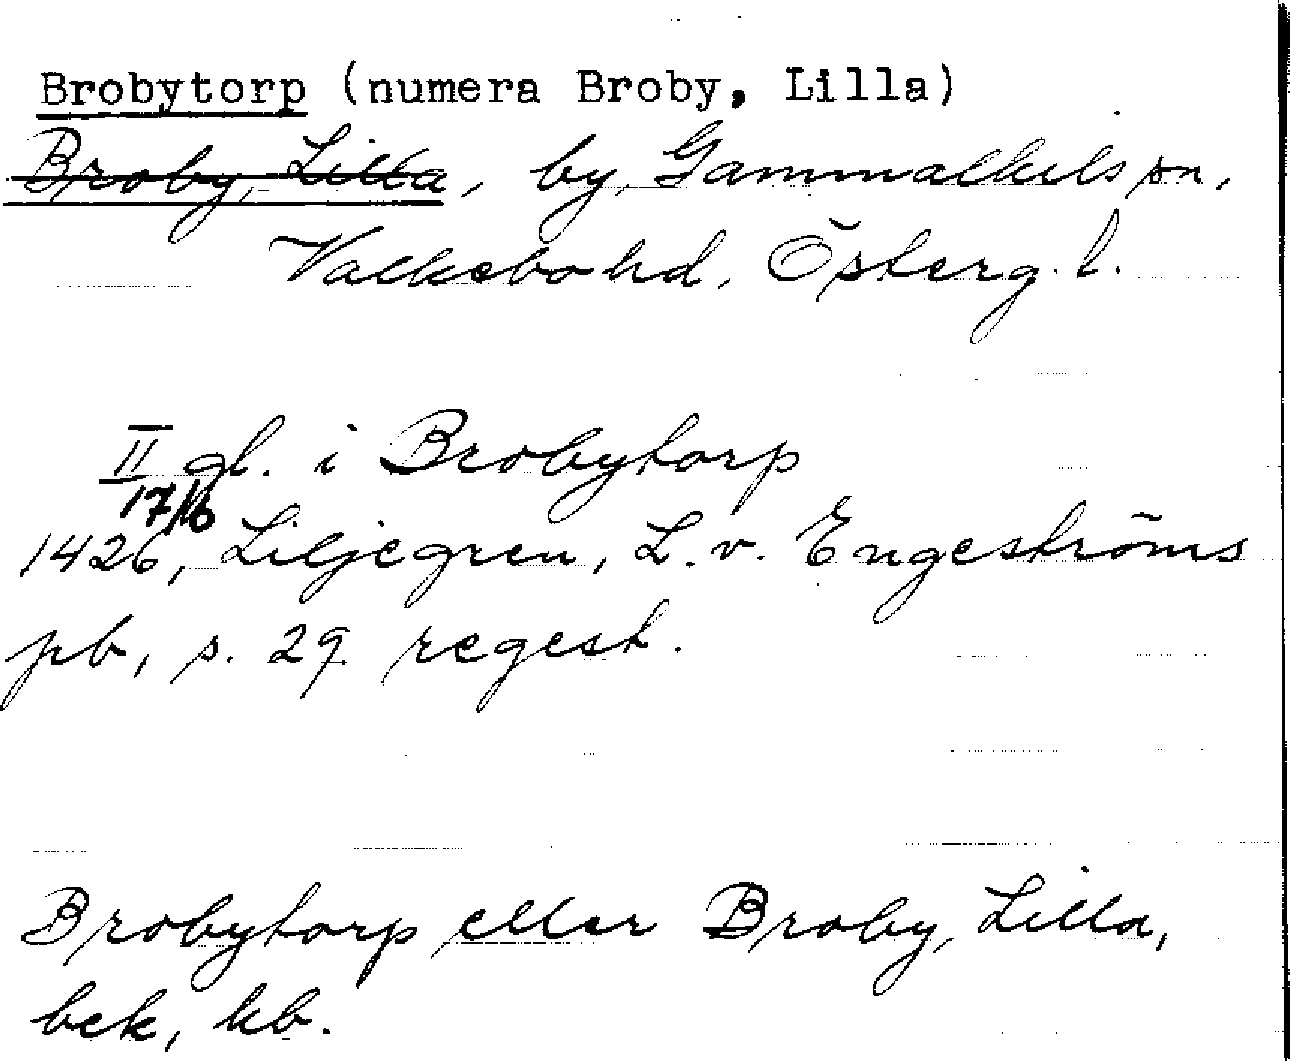 Brobytorp (numera Broby, Lilla)
Broby, Lilla, by, Gammalkils sn,
Valkebo hd, Österg. l.
II gl. i Brobytorp
17/6
1426, Liljegren, L. v. Engeströms
pb, s. 29 regest.
Brobytorp eller Broby, Lilla,
bek, kb.